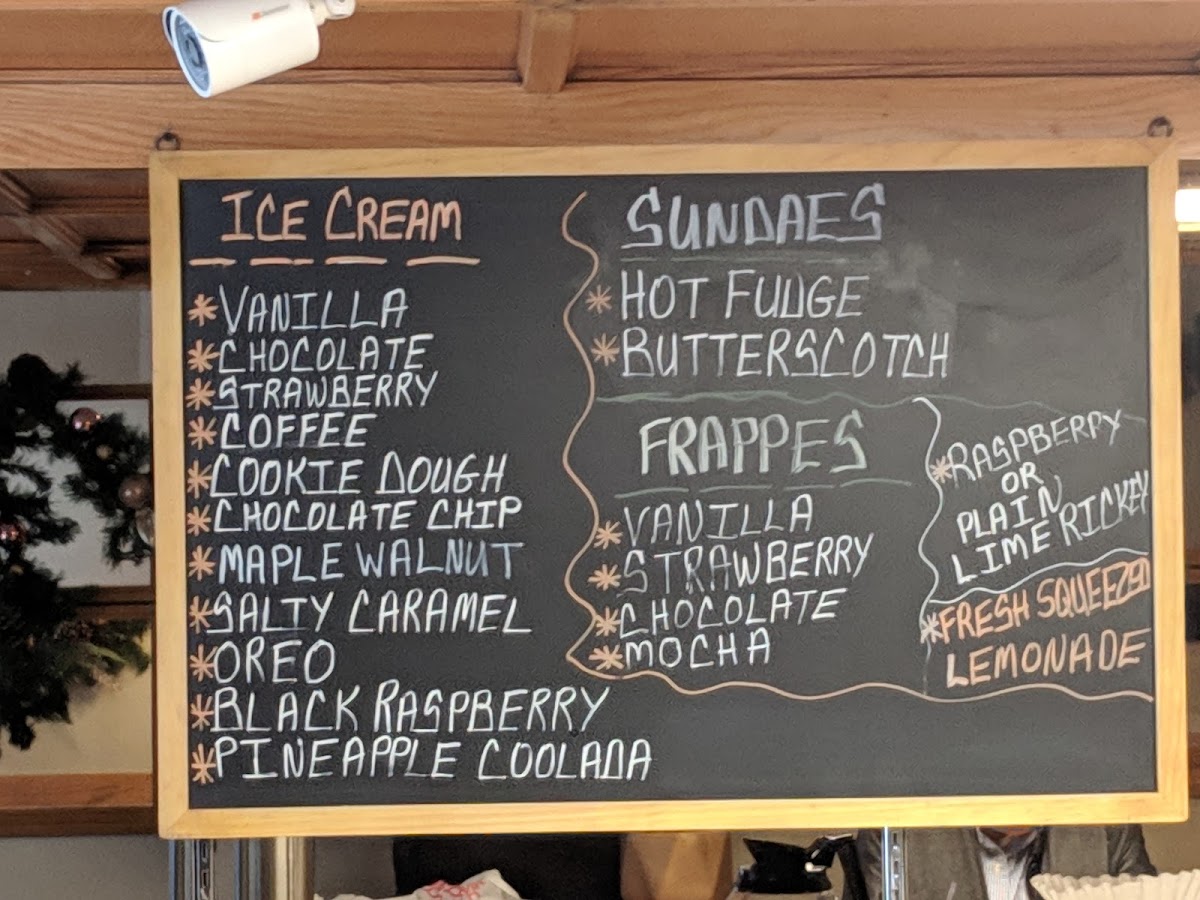 ICE CREAM
*VANILLA
*CHOCOLATE
*STRAWBERRY
*COFFEE
*COOKIE DOUGH
*CHOCOLATE CHIP
*MAPLE WALNUT
*SALTY CARAMEL
*OREO
*BLACK RASPBERRY
*PINEAPPLE COOLADA
SUNDAES
*HOT FUDGE
*BUTTERSCOTCH
FRAPPES
*VANILLA
*STRAWBERRY
*CHOCOLATE
*MOCHA
*RASPBERRY
OR
PLAIN
LIME RICKEY
*FRESH SQUEEZED
LEMONADE